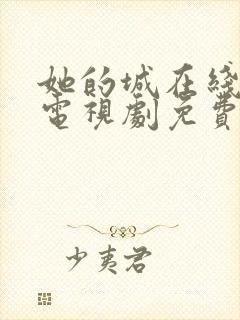 她的城在綫
電視劇免費
少夷君